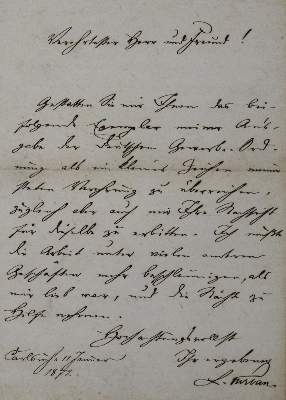 Verehrtester Herr und Freund!
Gestatten Sie mir Ihnen das bei-
folgende Exemplar meiner Aus-
gabe der Deutschen Gewerbe-Ord-
nung als ein kleines Zeichen meiner
Verehrung zu überreichen,
zugleich aber auch mir Ihre Nachsicht
für dieselbe zu erbitten. Ich mußte
die Arbeit unter vielen anderen
Geschäften mehr beschleunigen, als
mir lieb war, und die Nächte zu
Hilfe nehmen.
Hochachtungsvollst
Ihr ergebener
Carlsruhe 11 Januar
1872.